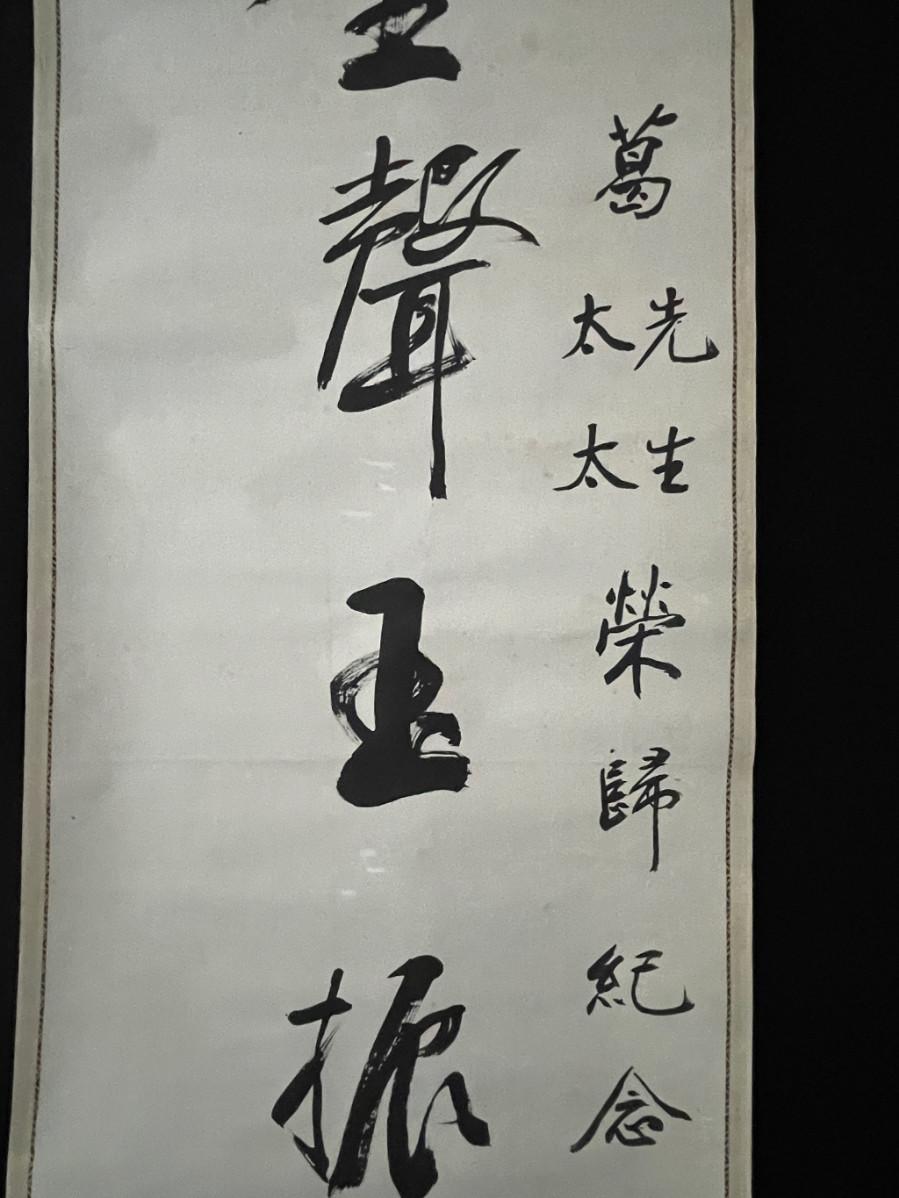 葛先生太太榮歸紀念
聲玉振